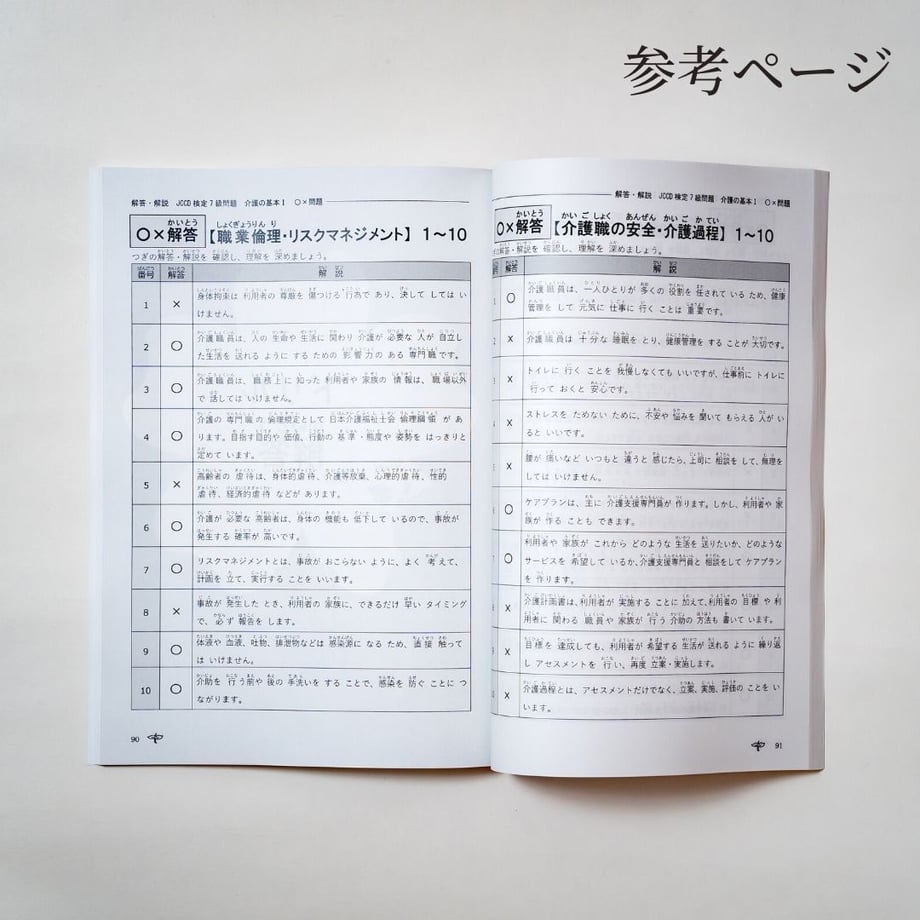 参考ページ
解答・解説 JCCD検定7級問題 介護の基本1 〇×問題
〇×解答【職業倫理・リスクマネジメント】1〜10
つぎの解答・解説を 確認し、理解を 深めましょう。
番号 解答 解説
1 × 身体拘束は 利用者の 尊厳を 傷つける 行為で あり、決して しては い
けません。
2 〇 介護職員は、人の 生命や 生活に 関わり 介護が 必要な 人が 自立し
た生活を 送れる ように する ための 影響力の ある 専門職です。
3 〇 介護職員は、職務上に 知った 利用者や 家族の 情報は、職場以外
で 話しては いけません。
4 〇 介護の 専門職の 倫理規定として 日本介護福祉士会 倫理綱領 が あ
ります。目指す目的や 価値、行動の 基準・態度や 姿勢を はっきりと
定めて います。
5 × 高齢者の 虐待は、身体的虐待、介護等放棄、心理的虐待、性的
虐待、経済的虐待 などが あります。
6 〇 介護が 必要な 高齢者は、身体の 機能も 低下して いるので、事故が
発生する 確率が 高いです。
7 〇 リスクマネジメントとは、事故が おこらない ように、よく 考えて、
計画を 立て、実行する ことを いいます。
8 × 事故が 発生した とき、利用者の 家族に、できるだけ 早い タイミング
で、必ず 報告を します。
9 〇 体液や 血液、吐物、排泄物などは 感染源に なる ため、直接 触って
は いけません。
10 〇 介助を 行う前や 後の 手洗いを する ことで、感染を 防ぐ ことに つ
ながります。
90
解答・解説 JCCD検定7級問題 介護の基本1 〇×問題
〇×解答【介護職の安全・介護過程】1〜10
の解答・解説を 確認し、理解を 深めましょう。
解答 解説
〇 介護職員は、一人ひとりが 多くの 役割を 任されて いる ため、健康
管理を して 元気に 仕事に 行く ことは 重要です。
× 介護職員は 十分な 睡眠を とり、健康管理を する ことが 大切です。
× トイレに 行く ことを 我慢しなくても いいですが、仕事前に トイレに
行って おくと 安心です。
× ストレスを ためない ために、不安や 悩みを 聞いて もらえる 人が い
ると いいです。
× 腰が 痛いなど いつもと 違うと 感じたら、上司に 相談を して、無理を
しては いけません。
〇 ケアプランは、主に 介護支援専門員が 作ります。しかし、利用者や 家
族が 作る ことも できます。
〇 利用者や 家族が これから どのような 生活を 送りたいか、どのような
サービスを 希望して いるか、介護支援専門員と 相談をして ケアプラン
を 作ります。
× 介護計画書は、利用者が 実施する ことに 加えて、利用者の 目標 や 利
用者に 関わる 職員や 家族が 行う 介助の 方法も 書いて います。
× 目標を 達成しても、利用者が 希望する 生活が 送れる ように 繰り返
し アセスメントを 行い、再度 立案・実施します。
10 × 介護過程とは、アセスメントだけでなく、立案、実施、評価の ことを い
います。
91